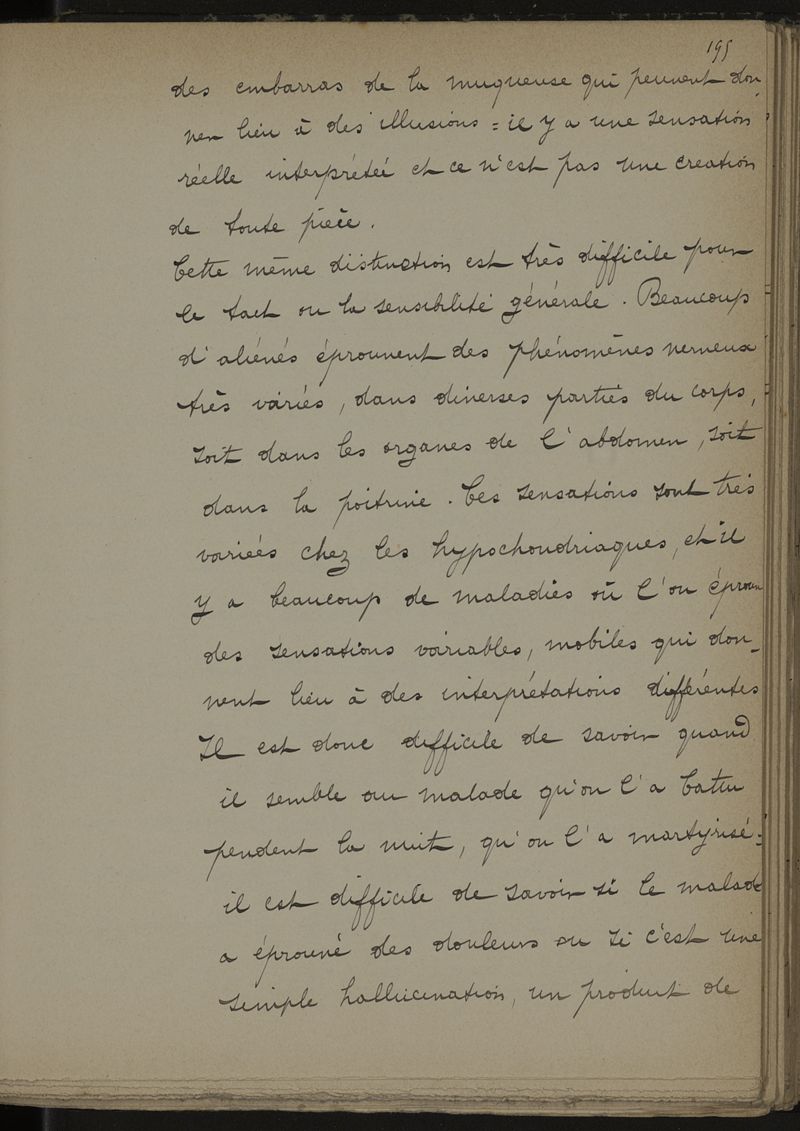 195
des embarras de la muqueuse qui peuvent don-
ner lieu à des illusions = il y a une sensation
réelle interprétée et ce n'est pas une creation
de toute pièce.
Cette même distinction est très difficile pour
le tact ou la sensibilité générale. Beaucoup
d'aliénés éprouvent des phénomènes nerveux
très variés, dans diverses parties du corps,
soit dans les organes de l'abdomen, soit
dans la poitrine. Ces sensations sont très
variées chez les hypochondriaques, et il
y a beaucoup de maladies où l'on éprouve
des sensations variables, mobiles qui don-
nent lieu à des interprétations différentes
Il est donc difficile de savoir quand
il semble au malade qu'on l'a battu
pendent la nuit, qu'on l'a martyrisé =
il est difficile de savoir si le malade
a éprouvé des douleurs ou si c'est une
simple hallucination, un produit de